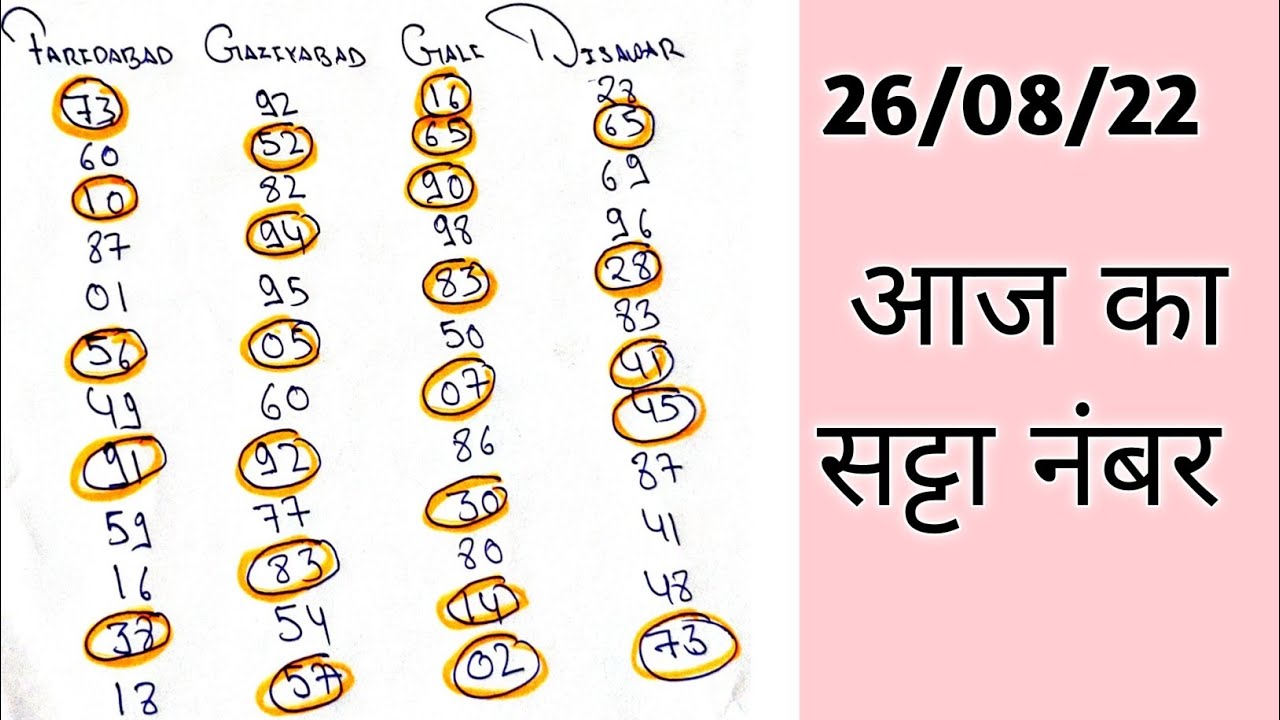 FARIDABAD GAZIYABAD GALI DISAWAR
73 92 16 27
60 52 65 65
10 82 90 69
87 94 98 96
01 95 83 28
56 05 50 83
49 60 07 41
91 92 86 45
59 77 30 87
16 83 80 41
38 54 14 48
18 57 02 73
26/08/22
आज का
सट्टा नंबर